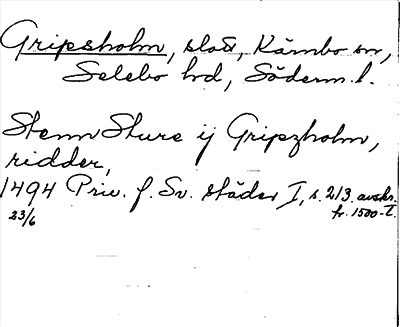 Gripsholm, slott, Kärnbo sn,
Selebo hd, Söderm. l.
Stenn Sture ij Gripzholm,
ridder,
1494 Priv. f. Sv. städer I, s. 213. avskr.
23/6 fr. 1500-t.